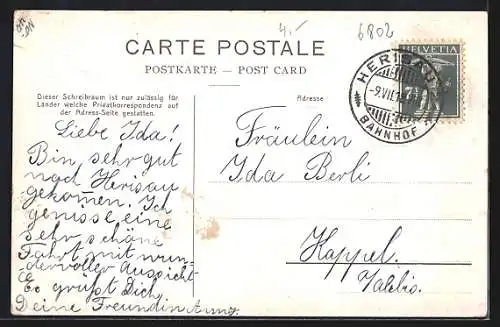 4.-
6802
CARTE POSTALE
POSTKARTE — POST CARD
HELVETIA
HERISAU
-9.VII.1
BAHNHOF
Dieser Schreibraum ist nur zulässig für
Länder welche Privatkorrespondenz auf
der Adress-Seite gestatten.
Adresse
Liebe Ida!
Bin sehr gut
nach Herisau
gekommen. Ich
geniesse eine
sehr schöne
Fahrt mit wun-
dervoller Aussicht
Es grüsst Dich
Deine Freundin
Fräulein
Ida Berli
Kappel.